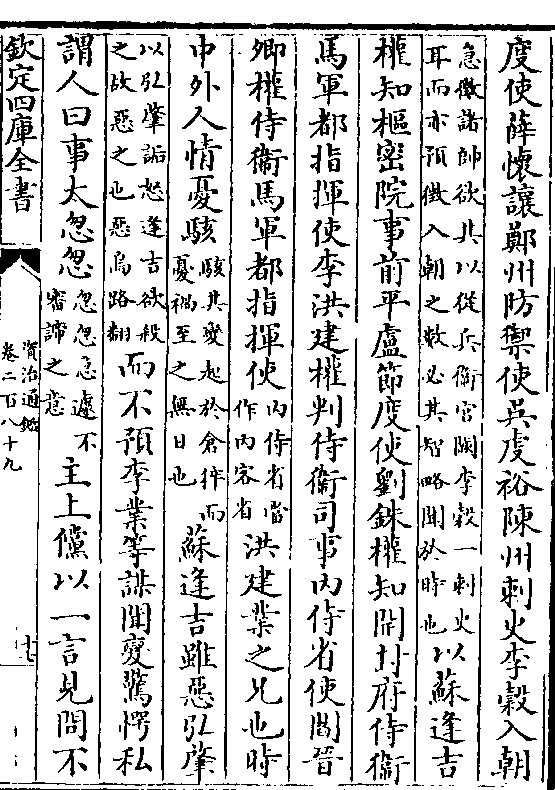 度使薛懷讓鄭州防禦使吳虔裕陳州刺史李穀入朝
急徵諸帥欲其以從兵衞宫闕李穀一刺史
耳而亦預徵入朝之數必其智略聞於時也
以蘇逢吉
權知樞密院事前平盧節度使劉銖權知開封府侍衞
馬軍都指揮使李洪建權判侍衞司事内侍省使閻晉
卿權侍衞馬軍都指揮使
内侍省當
作内客省
洪建業之兄也時
中外人情憂駭
駭其變起於倉猝而
憂禍至之無日也
蘇逢吉雖惡弘肇
以弘肇詬怒逢吉欲殺
之故惡之也惡烏路翻
而不預李業等謀聞變驚愕私
謂人曰事太怱怱
怱怱急遽不
審諦之意
主上儻以一言見問不
欽定四庫全書
資治通鑑
卷二百八十九
十七